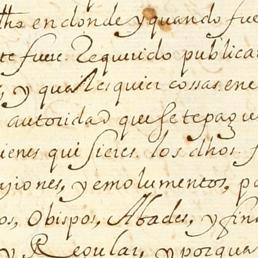 en donde y quando fue
te fuere Requerido publicar
, y quales quier cossas en e
autoridad que se te pague
ienes qui sieres. los dhos.
y emolumentos, po
os, Obispos, Abades, y fin
y Regular, y porqua